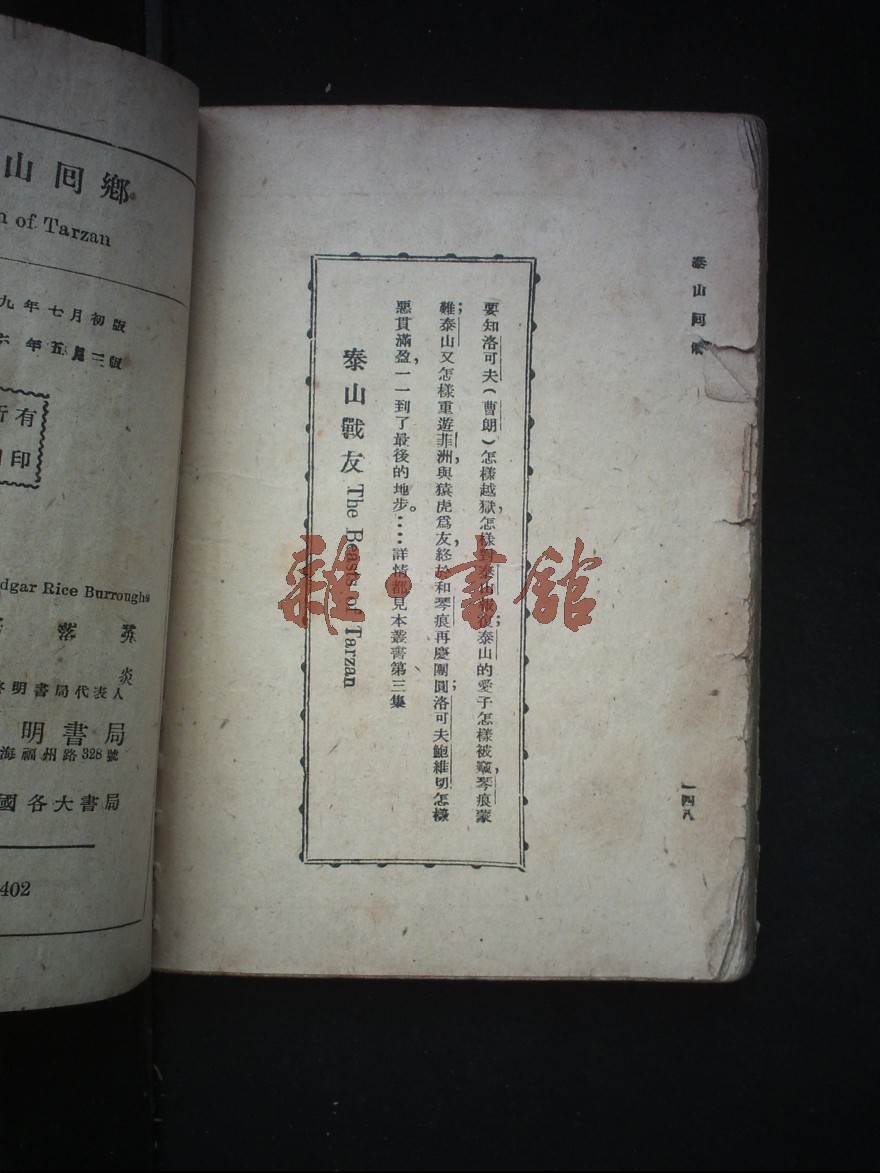 泰山回鄉
要知洛可夫（曹朗）怎樣越獄，怎樣對泰山報復；泰山的愛子怎樣被竊，琴痕蒙
難；泰山又怎樣重遊菲洲，與猿虎爲友，終於和琴痕再慶團圓；洛可夫鮑維切怎樣
惡貫滿盈，一一到了最後的地步。……詳情都見本叢書第三集
泰山戰友 The Beasts of Tarzan
一四八
山回鄉
n of Tarzan
九年七月初版
六年五月三版
所有
印
dgar Rice Burroughs
落
炎
明書局代表人
明書局
海福州路328號
國各大書局
402
雜·書館